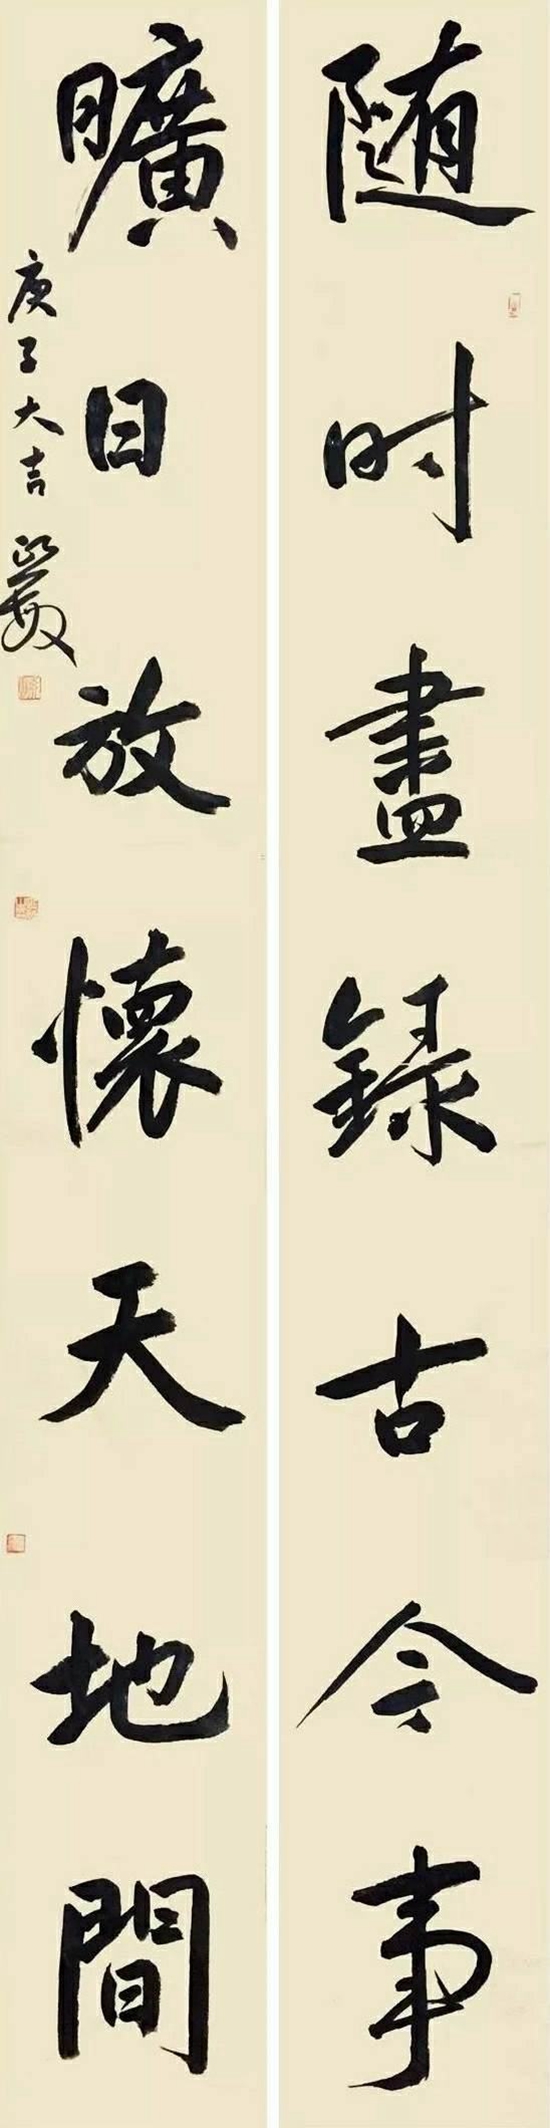 随时盡録古今事
曠日放懷天地間
庚子大吉